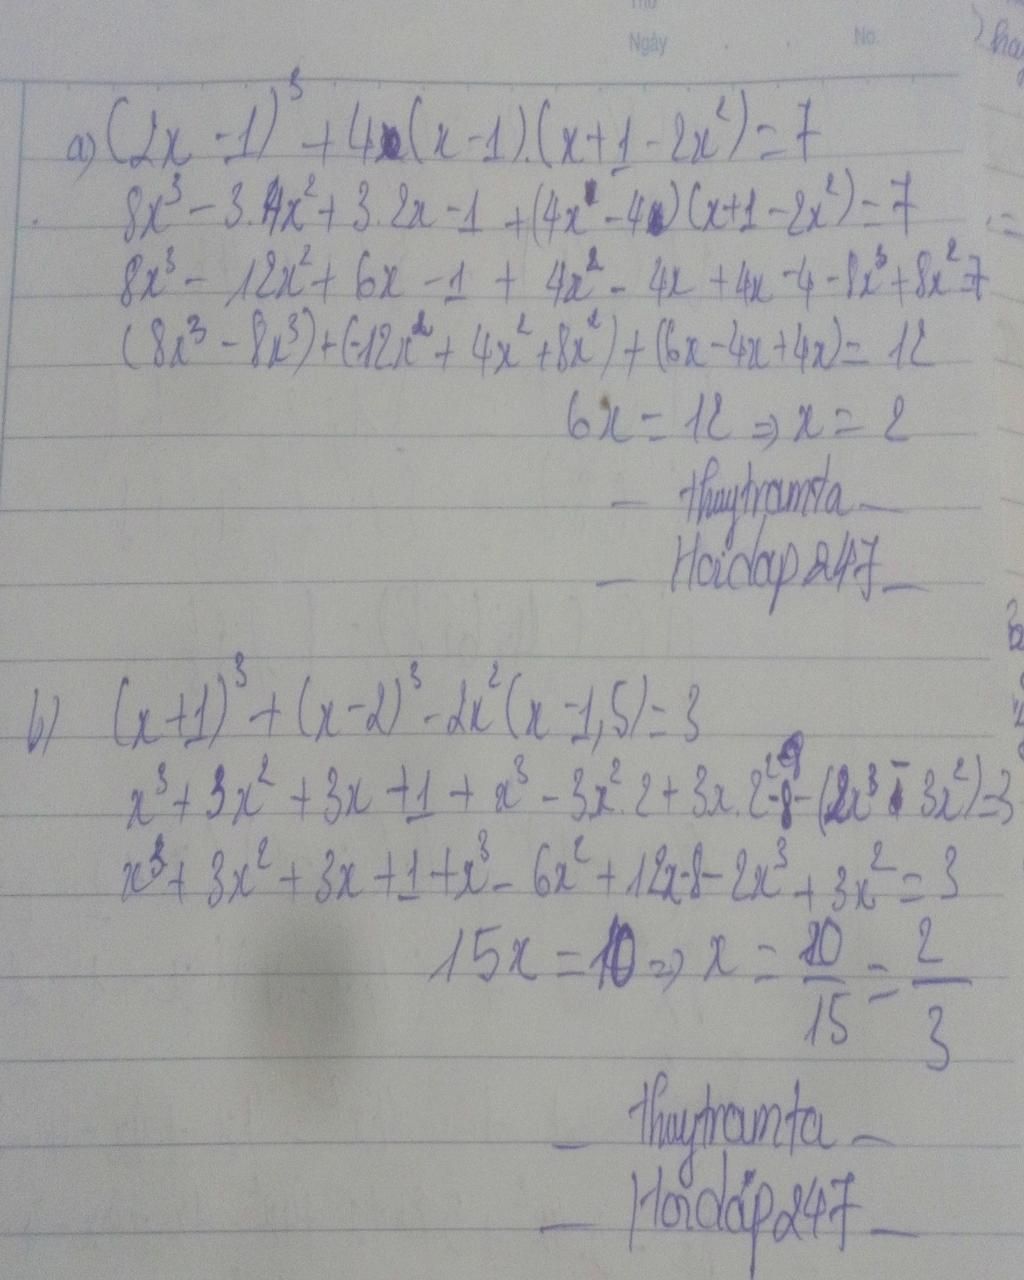 Thứ
Ngày . . No.
a) (2x - 1)³ + 4(x - 1).(x + 1 - 2x²) = 7
8x³ - 3.4x² + 3.2x - 1 + (4x - 4)(x + 1 - 2x²) = 7
8x³ - 12x² + 6x - 1 + 4x² - 4x + 4x - 4 - 8x³ + 8x² = 7
(8x³ - 8x³) + (-12x² + 4x² + 8x²) + (6x - 4x + 4x) = 12
6x = 12 => x = 2
- thuytramta -
- Hoidap247 -
b) (x + 1)³ + (x - 2)³ - 2x²(x - 1,5) = 3
x³ + 3x² + 3x + 1 + x³ - 3x².2 + 3x.2² - 8 - (2x³ - 3x²) = 3
x³ + 3x² + 3x + 1 + x³ - 6x² + 12x - 8 - 2x³ + 3x² = 3
15x = 10 => x = 10/15 = 2/3
- thuytramta -
- Hoidap247 -